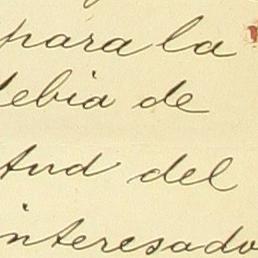 para la
debia de
tud del
interesado